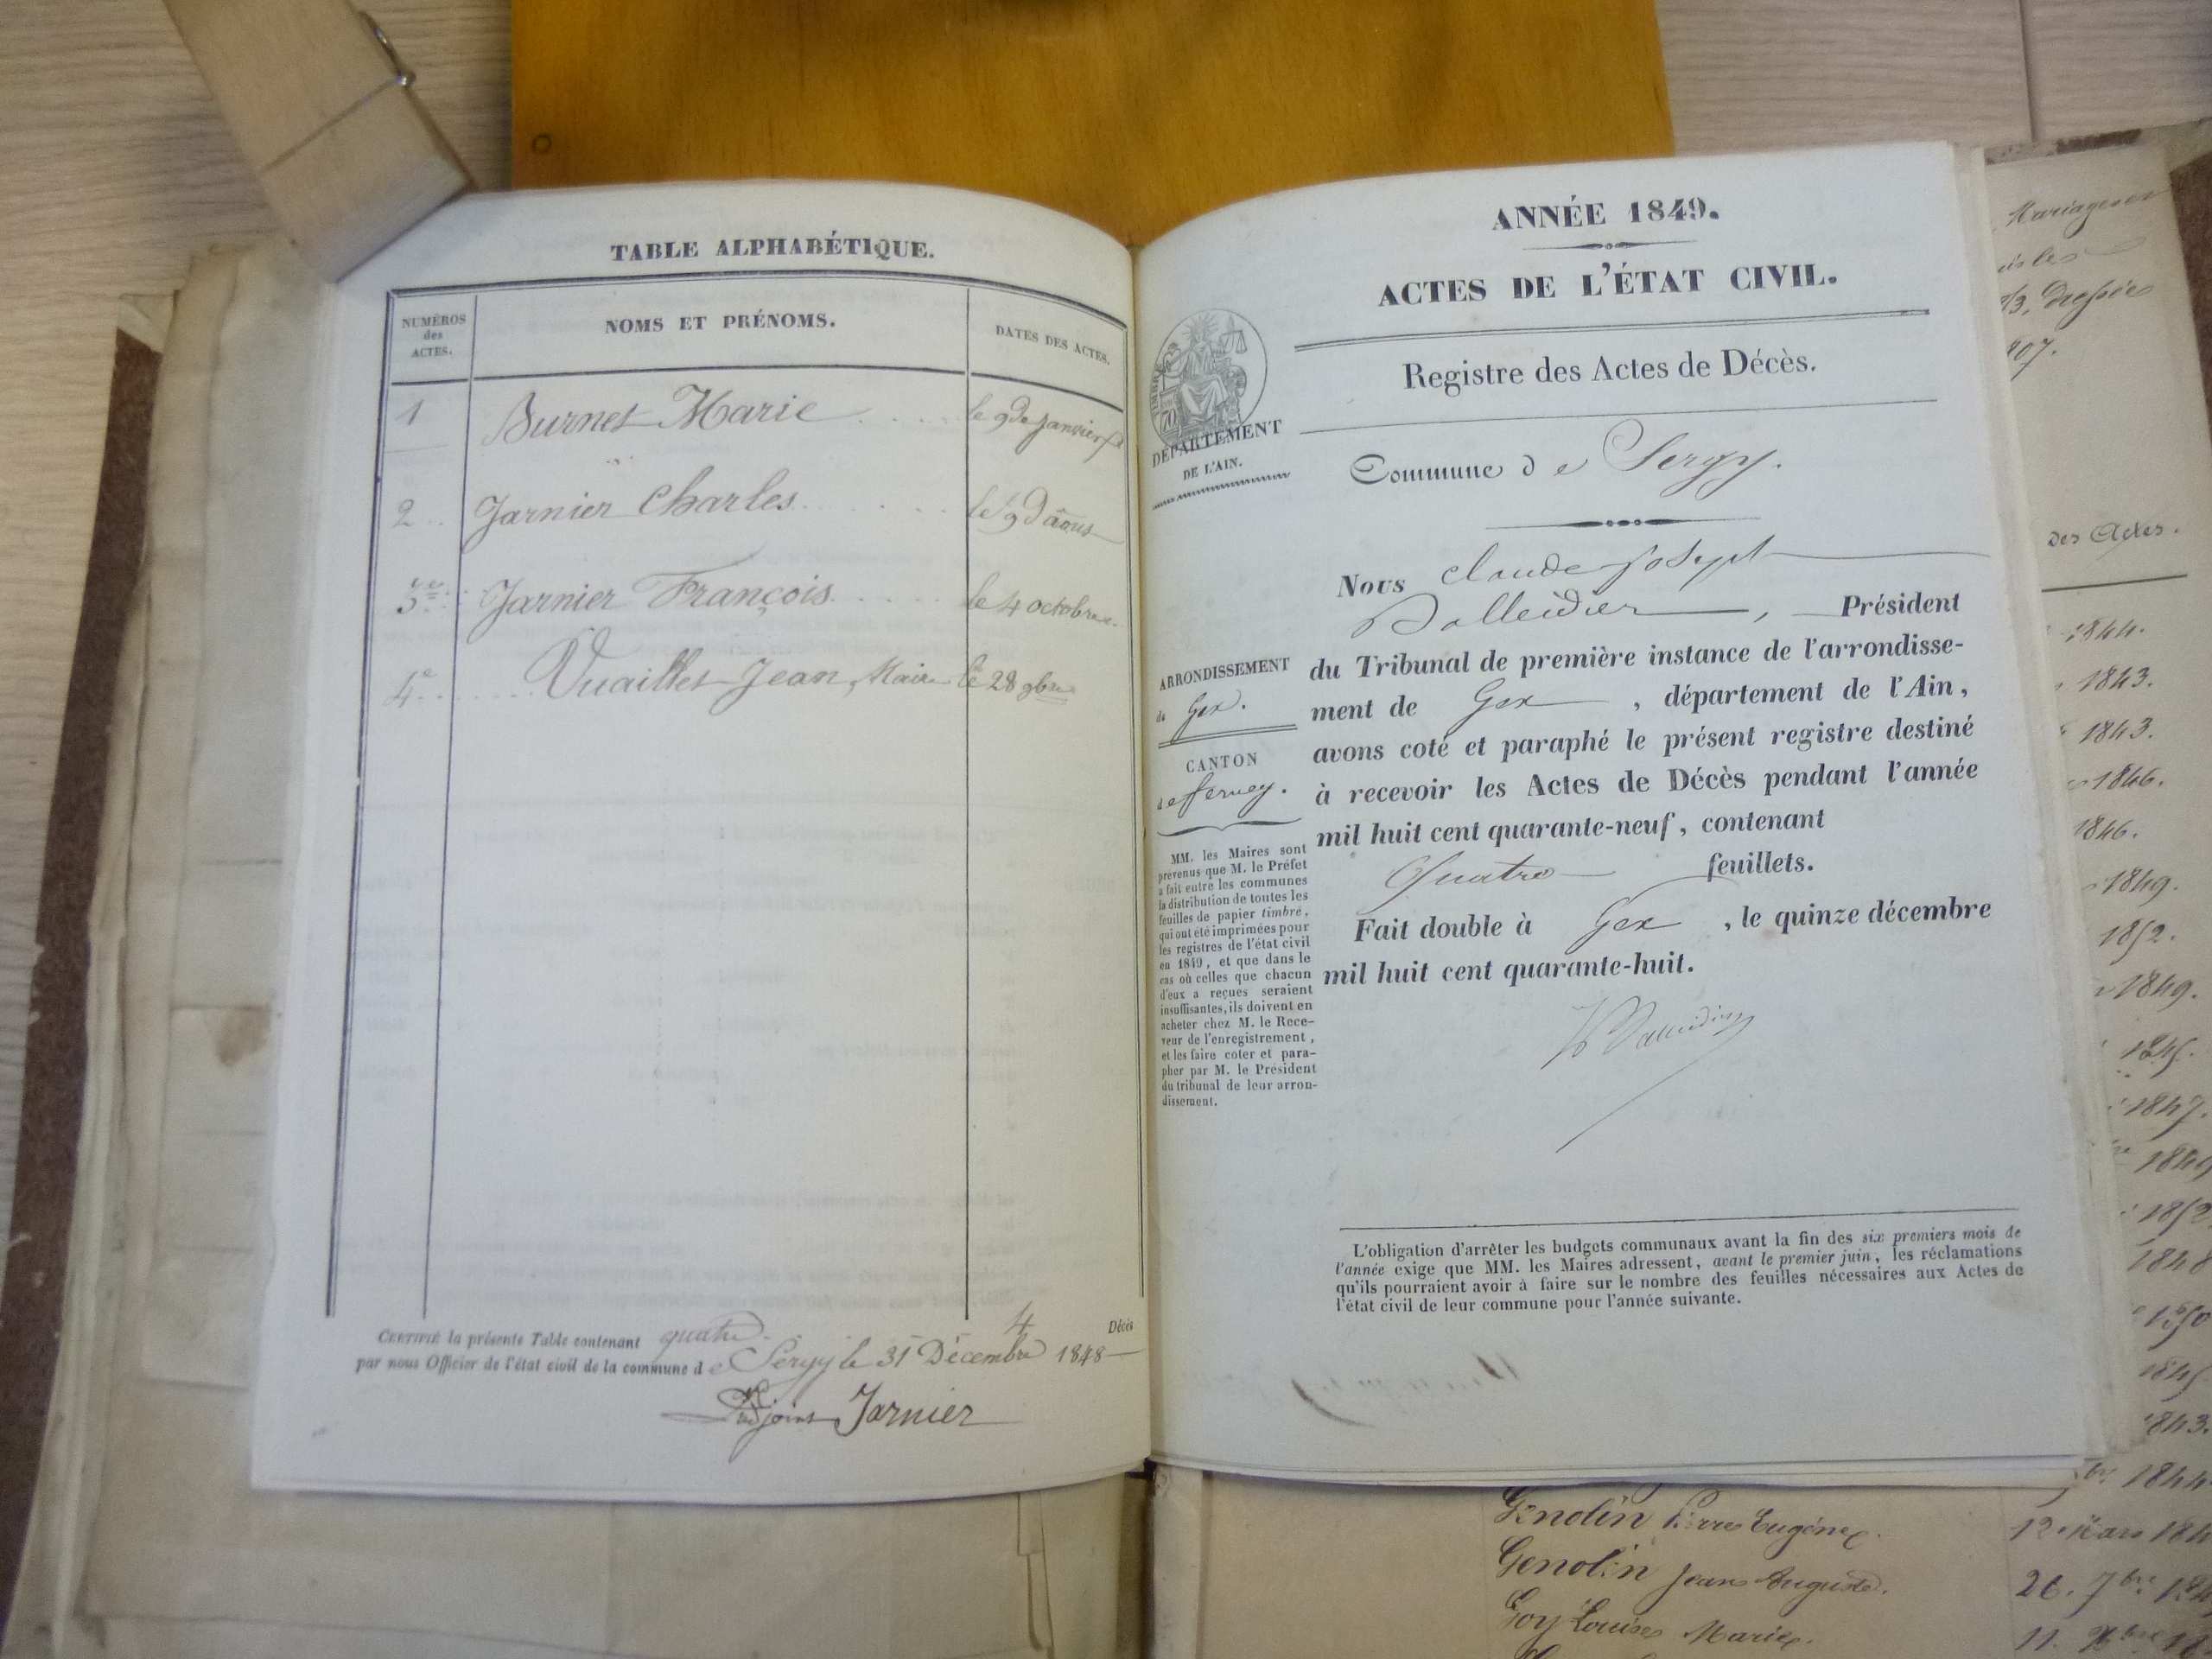 TABLE ALPHABÉTIQUE.
NUMÉROS des ACTES.
NOMS ET PRÉNOMS.
DATES DES ACTES.
1 Burnet Marie le 9 de janvier
2 Jarnier Charles le 9 d'aôus
3e Jarnier François le 4 octobre
4e Vuaillet Jean, Maire le 28 9bre
CERTIFIÉ la présente Table contenant quatre 4 Décès
par nous Officier de l'état civil de la commune de Sergy le 31 Décembre 1848
adjoint Jarnier
ANNÉE 1849.
ACTES DE L'ÉTAT CIVIL.
Registre des Actes de Décès.
TIMBRE
70
DÉPARTEMENT
DE L'AIN.
Commune de Sergy.
Nous Claude Joseph
Balleidier, Président
du Tribunal de première instance de l'arrondisse-
ment de Gex, département de l'Ain,
avons coté et paraphé le présent registre destiné
à recevoir les Actes de Décès pendant l'année
mil huit cent quarante-neuf, contenant
Quatre feuillets.
Fait double à Gex, le quinze décembre
mil huit cent quarante-huit.
ARRONDISSEMENT
de Gex.
CANTON
de ferney.
MM. les Maires sont
prévenus que M. le Préfet
a fait entre les communes
la distribution de toutes les
feuilles de papier timbré,
qui ont été imprimées pour
les registres de l'état civil
en 1849, et que dans le
cas où celles que chacun
d'eux a reçues seraient
insuffisantes, ils doivent en
acheter chez M. le Rece-
veur de l'enregistrement,
et les faire coter et para-
pher par M. le Président
du tribunal de leur arron-
dissement.
L'obligation d'arrêter les budgets communaux avant la fin des six premiers mois de
l'année exige que MM. les Maires adressent, avant le premier juin, les réclamations
qu'ils pourraient avoir à faire sur le nombre des feuilles nécessaires aux Actes de
l'état civil de leur commune pour l'année suivante.
Mariages
des Actes.
1844.
1843.
1843.
1846.
1846.
1849.
1852.
1849.
1845.
1847.
1852
1848
1850
1845
1843.
1844
Genolin Pierre Eugène. 12 Mars 184
Genolin Jean Auguste. 26. 7bre 184
Goy Louise Marie. 11.